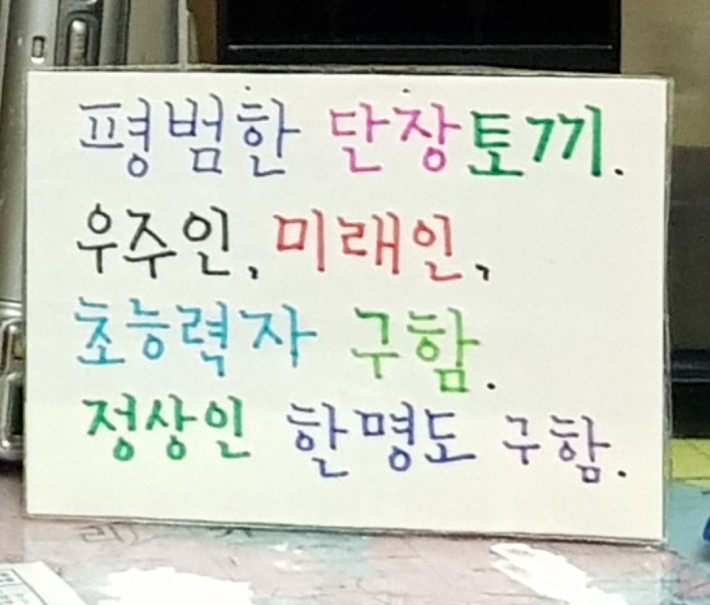 평범한 단장토끼.
우주인, 미래인,
초능력자 구함.
정상인 한명도 구함.